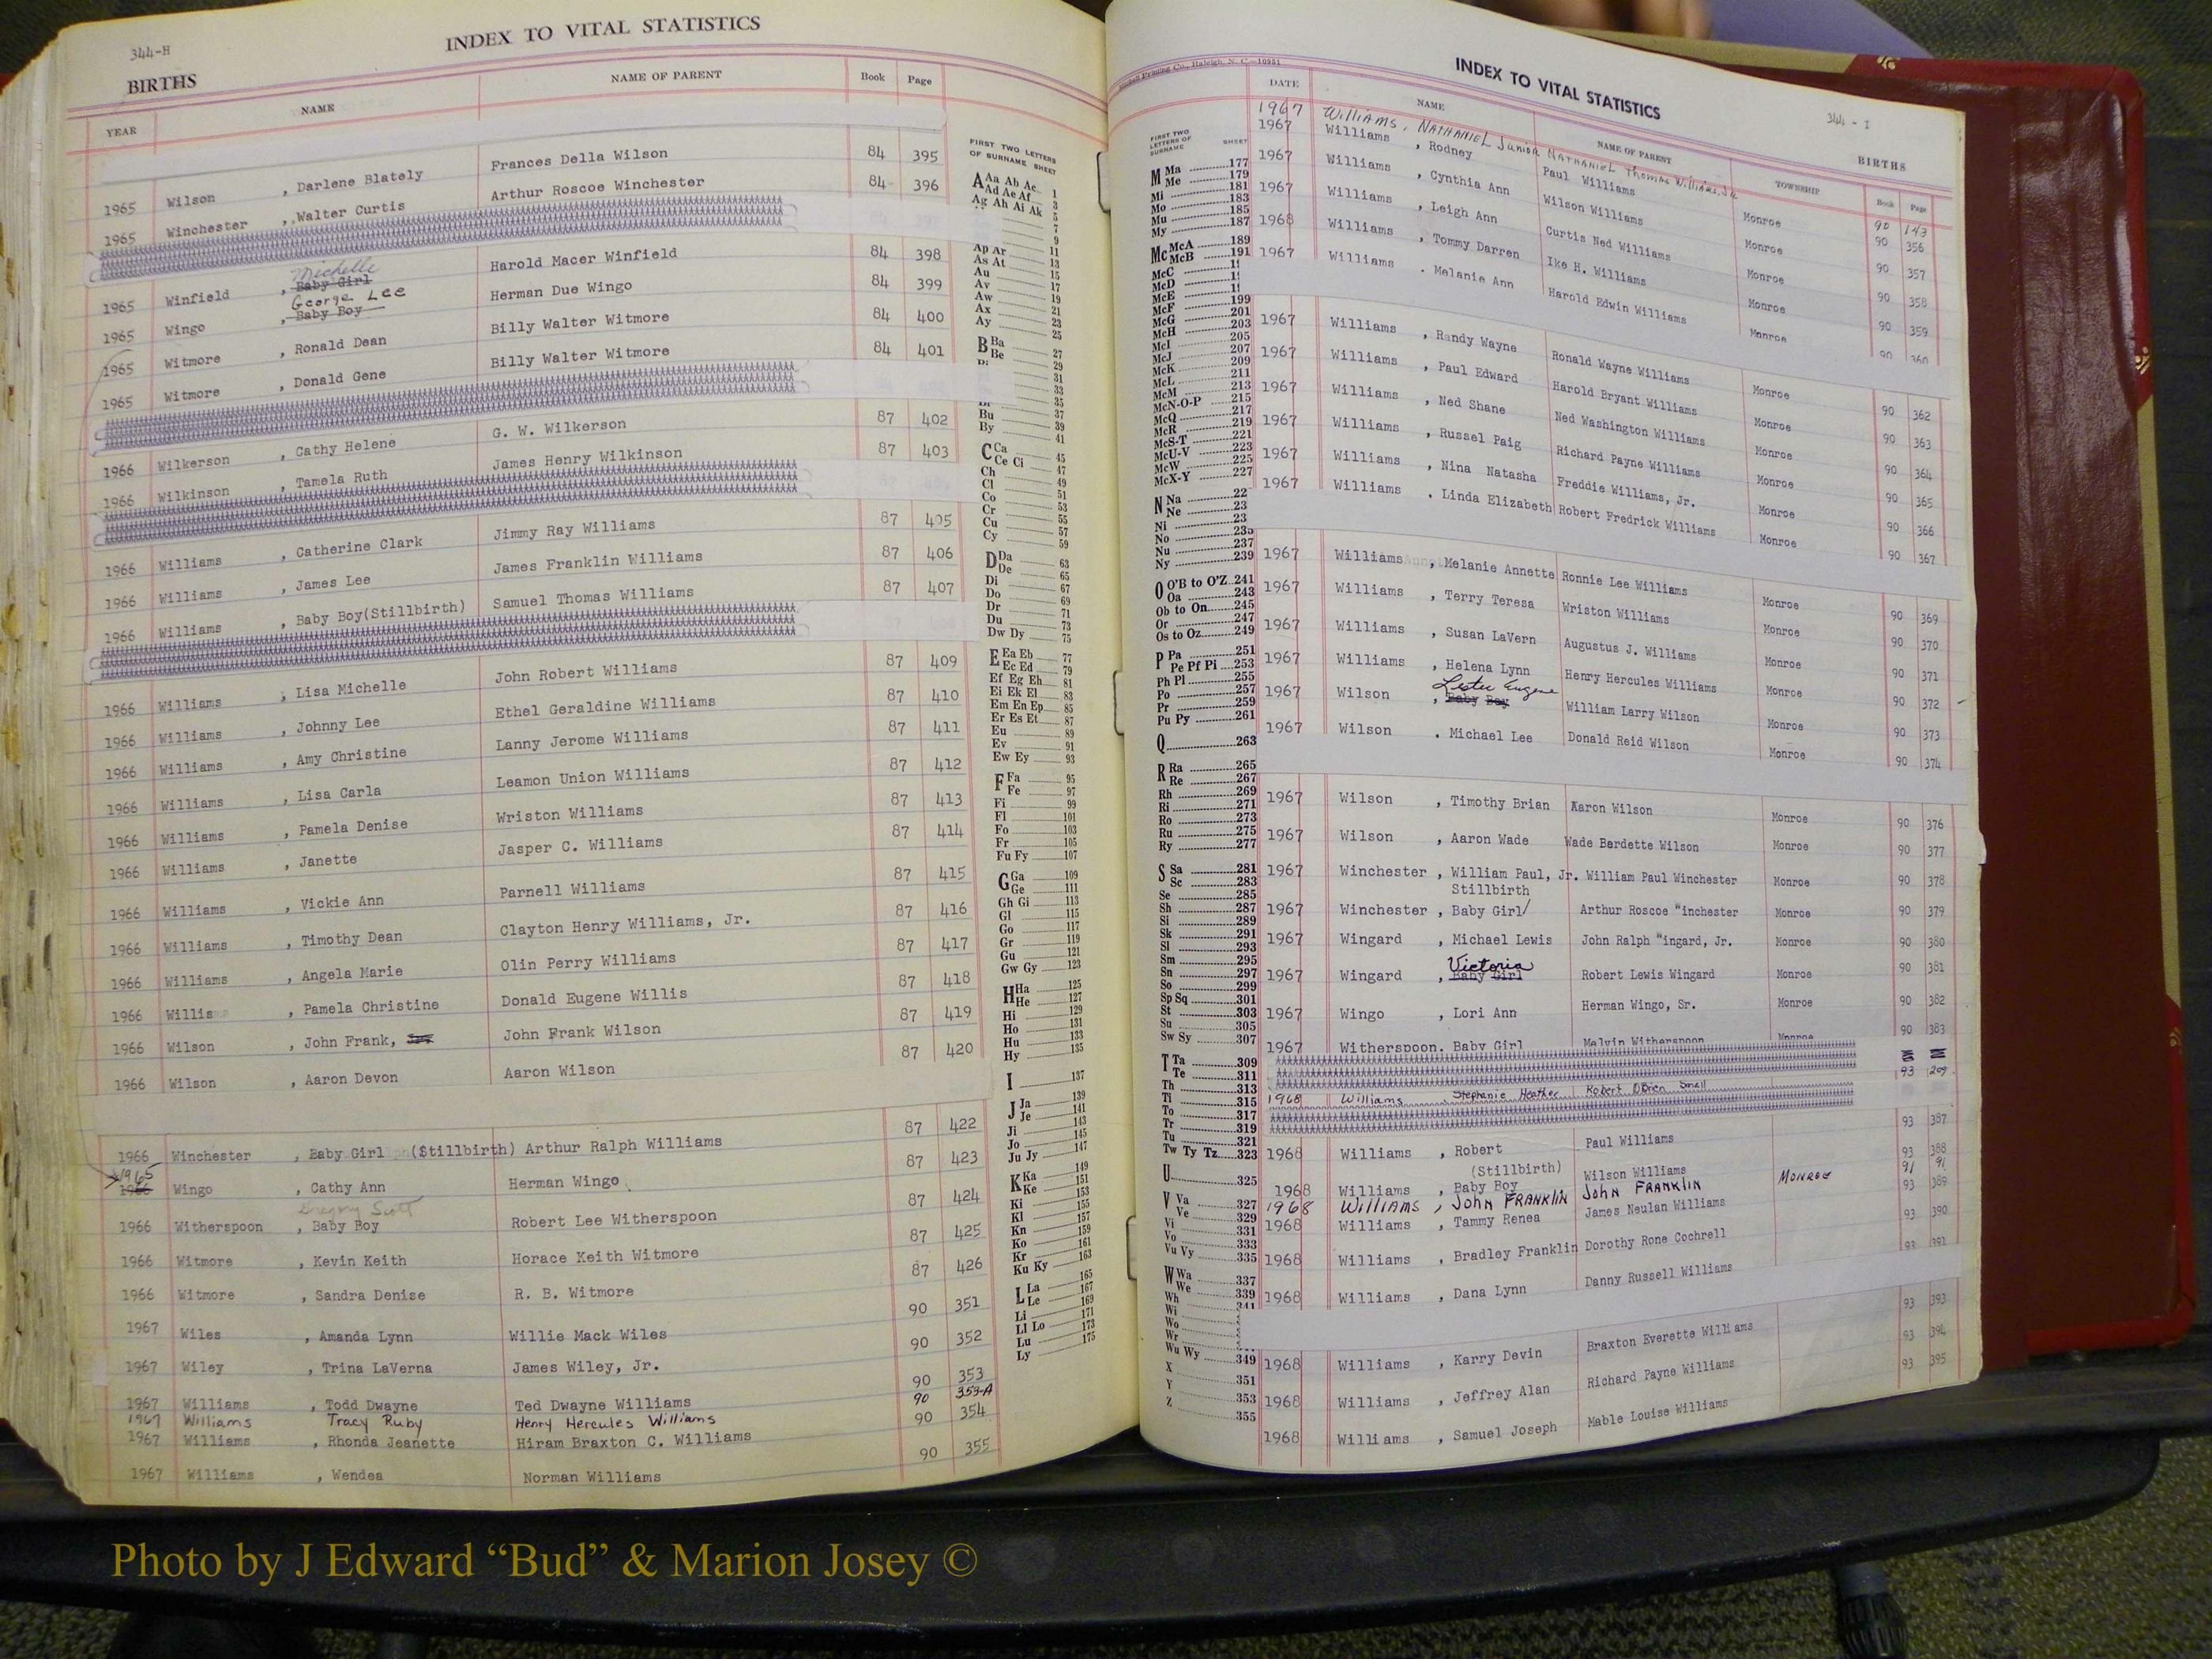 344-H
INDEX TO VITAL STATISTICS
BIRTHS
YEAR NAME NAME OF PARENT Book Page
1965 Wilson , Darlene Blately Frances Della Wilson 84 395
1965 Winchester , Walter Curtis Arthur Roscoe Winchester 84 396
Michelle
1965 Winfield , Baby Girl Harold Macer Winfield 84 398
George Lee
1965 Wingo , Baby Boy Herman Due Wingo 84 399
1965 Witmore , Ronald Dean Billy Walter Witmore 84 400
1965 Witmore , Donald Gene Billy Walter Witmore 84 401
1966 Wilkerson , Cathy Helene G. W. Wilkerson 87 402
1966 Wilkinson , Tamela Ruth James Henry Wilkinson 87 403
1966 Williams , Catherine Clark Jimmy Ray Williams 87 405
1966 Williams , James Lee James Franklin Williams 87 406
1966 Williams , Baby Boy(Stillbirth) Samuel Thomas Williams 87 407
1966 Williams , Lisa Michelle John Robert Williams 87 409
1966 Williams , Johnny Lee Ethel Geraldine Williams 87 410
1966 Williams , Amy Christine Lanny Jerome Williams 87 411
1966 Williams , Lisa Carla Leamon Union Williams 87 412
1966 Williams , Pamela Denise Wriston Williams 87 413
1966 Williams , Janette Jasper C. Williams 87 414
1966 Williams , Vickie Ann Parnell Williams 87 415
1966 Williams , Timothy Dean Clayton Henry Williams, Jr. 87 416
1966 Williams , Angela Marie Olin Perry Williams 87 417
1966 Willis , Pamela Christine Donald Eugene Willis 87 418
1966 Wilson , John Frank, John Frank Wilson 87 419
1966 Wilson , Aaron Devon Aaron Wilson 87 420
1966 Winchester , Baby Girl (Stillbirth) Arthur Ralph Williams 87 422
1965
1966 Wingo , Cathy Ann Herman Wingo 87 423
Gregory Scott
1966 Witherspoon , Baby Boy Robert Lee Witherspoon 87 424
1966 Witmore , Kevin Keith Horace Keith Witmore 87 425
1966 Witmore , Sandra Denise R. B. Witmore 87 426
1967 Wiles , Amanda Lynn Willie Mack Wiles 90 351
1967 Wiley , Trina LaVerna James Wiley, Jr. 90 352
1967 Williams , Todd Dwayne Ted Dwayne Williams 90 353
1967 Williams Tracy Ruby Henry Hercules Williams 90 353-A
1967 Williams , Rhonda Jeanette Hiram Braxton C. Williams 90 354
1967 Williams , Wendea Norman Williams 90 355
FIRST TWO LETTERS
OF SURNAME SHEET
A Aa Ab Ac 1
Ad Ae Af 3
Ag Ah Ai Ak 5
7
9
Ap Ar 11
As At 13
Au 15
Av 17
Aw 19
Ax 21
Ay 23
25
B Ba 27
Be 29
31
33
35
Bu 37
By 39
41
C Ca 45
Ce Ci 47
Ch 49
Cl 51
Co 53
Cr 55
Cu 57
Cy 59
D Da 63
De 65
Di 67
Do 69
Dr 71
Du 73
Dw Dy 75
E Ea Eb 77
Ec Ed 79
Ef Eg Eh 81
Ei Ek El 83
Em En Ep 85
Er Es Et 87
Eu 89
Ev 91
Ew Ey 93
F Fa 95
Fe 97
Fi 99
Fl 101
Fo 103
Fr 105
Fu Fy 107
G Ga 109
Ge 111
Gh Gi 113
Gl 115
Go 117
Gr 119
Gu 121
Gw Gy 123
H Ha 125
He 127
Hi 129
Ho 131
Hu 133
Hy 135
I 137
J Ja 139
Je 141
Ji 143
Jo 145
Ju Jy 147
K Ka 149
Ke 151
Ki 153
Kl 155
Kn 157
Ko 159
Kr 161
Ku Ky 163
L La 165
Le 167
Li 169
Ll Lo 171
Lu 173
Ly 175
Printing Co., Raleigh, N. C.—10951
INDEX TO VITAL STATISTICS
344 - I
BIRTHS
DATE NAME NAME OF PARENT TOWNSHIP Book Page
1967 Williams, NATHANIEL Junior NATHANIEL Thomas Williams, Jr. 90 143
1967 Williams , Rodney Paul Williams Monroe 90 356
1967 Williams , Cynthia Ann Wilson Williams Monroe 90 357
1967 Williams , Leigh Ann Curtis Ned Williams Monroe 90 358
1968 Williams , Tommy Darren Ike H. Williams Monroe 90 359
1967 Williams , Melanie Ann Harold Edwin Williams Monroe 90 360
1967 Williams , Randy Wayne Ronald Wayne Williams Monroe 90 362
1967 Williams , Paul Edward Harold Bryant Williams Monroe 90 363
1967 Williams , Ned Shane Ned Washington Williams Monroe 90 364
1967 Williams , Russel Paig Richard Payne Williams Monroe 90 365
1967 Williams , Nina Natasha Freddie Williams, Jr. Monroe 90 366
1967 Williams , Linda Elizabeth Robert Fredrick Williams Monroe 90 367
1967 Williams , Melanie Annette Ronnie Lee Williams Monroe 90 369
1967 Williams , Terry Teresa Wriston Williams Monroe 90 370
1967 Williams , Susan LaVern Augustus J. Williams Monroe 90 371
1967 Williams , Helena Lynn Henry Hercules Williams Monroe 90 372
Lester Eugene
1967 Wilson , Baby Boy William Larry Wilson Monroe 90 373
1967 Wilson , Michael Lee Donald Reid Wilson Monroe 90 374
1967 Wilson , Timothy Brian Aaron Wilson Monroe 90 376
1967 Wilson , Aaron Wade Wade Berdette Wilson Monroe 90 377
1967 Winchester , William Paul, Jr. William Paul Winchester Monroe 90 378
Stillbirth
1967 Winchester , Baby Girl/ Arthur Roscoe "inchester Monroe 90 379
1967 Wingard , Michael Lewis John Ralph "ingard, Jr. Monroe 90 380
Victoria
1967 Wingard , Baby Girl Robert Lewis Wingard Monroe 90 381
1967 Wingo , Lori Ann Herman Wingo, Sr. Monroe 90 382
1967 Witherspoon, Baby Girl Melvin Witherspoon Monroe 90 383
1968 Williams Stephanie Heather Robert OBrien Small 93 209
1968 Williams , Robert Paul Williams 93 387
(Stillbirth)
1968 Williams , Baby Boy Wilson Williams 93 388
1968 Williams , JOHN FRANKLIN JOHN FRANKLIN MONROE 91 91
1968 Williams , Tammy Renea James Neulan Williams 93 389
1968 Williams , Bradley Franklin Dorothy Rone Cochrell 93 390
1968 Williams , Dana Lynn Danny Russell Williams 93 391
1968 Williams , Karry Devin Braxton Everette Williams 93 393
1968 Williams , Jeffrey Alan Richard Payne Williams 93 394
1968 Williams , Samuel Joseph Mable Louise Williams 93 395
FIRST TWO
LETTERS OF
SURNAME SHEET
M Ma 177
Me 179
Mi 181
Mo 183
Mu 185
My 187
Mc McA 189
McB 191
McC
McD
McE
McF 199
McG 201
McH 203
McI 205
McJ 207
McK 209
McL 211
McM 213
McN-O-P 215
McQ 217
McR 219
McS-T 221
McU-V 223
McW 225
McX-Y 227
N Na 22
Ne 23
Ni 23
No 235
Nu 237
Ny 239
O O'B to O'Z 241
Oa 243
Ob to On 245
Or 247
Os to Oz 249
P Pa 251
Pe Pf Pi 253
Ph Pl 255
Po 257
Pr 259
Pu Py 261
Q 263
R Ra 265
Re 267
Rh 269
Ri 271
Ro 273
Ru 275
Ry 277
S Sa 281
Sc 283
Se 285
Sh 287
Si 289
Sk 291
Sl 293
Sm 295
Sn 297
So 299
Sp Sq 301
St 303
Su 305
Sw Sy 307
T Ta 309
Te 311
Th 313
Ti 315
To 317
Tr 319
Tu 321
Tw Ty Tz 323
U 325
V Va 327
Ve 329
Vi 331
Vo 333
Vu Vy 335
W Wa 337
We 339
Wh 341
Wi
Wo
Wr
Wu Wy 349
X 351
Y 353
Z 355
Photo by J Edward “Bud” & Marion Josey ©